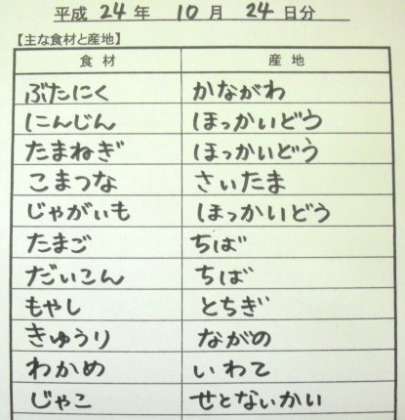 平成 24 年 10 月 24 日分
【主な食材と産地】
食材 産地
ぶたにく かながわ
にんじん ほっかいどう
たまねぎ ほっかいどう
こまつな さいたま
じゃがいも ほっかいどう
たまご ちば
だいこん ちば
もやし とちぎ
きゅうり ながの
わかめ いわて
じゃこ せとないかい